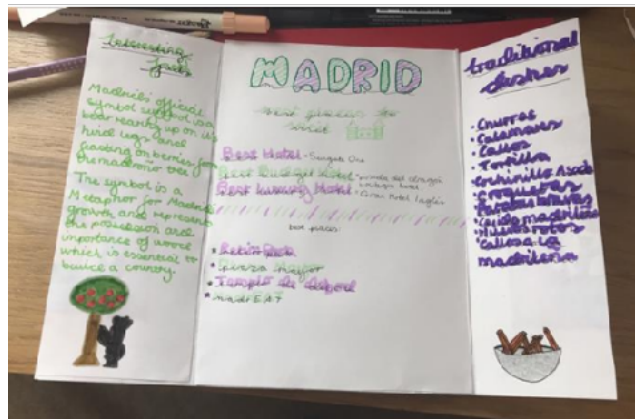 Interesting
facts
Madrid's official
symbol is a
bear rearing up on its
hind legs and
feasting on berries from
the madrono tree
The symbol is a
Metaphor for Madrid's
growth and represents
the possession and
importance of wood
which is essential to
build a country.
MADRID
best places to
visit
Best Hotel - One
Best Budget Hotel -
Best luxury Hotel - Gran Hotel Inglés
best places:
• Retiro Park
• plaza Mayor
• Temple de debod
traditional
dishes
• Churros
• Calamares
• Callos
• Tortilla
• Cochinillo Asado
• Croquetas
• Patatas Bravas
• Cocido madrileño
• Huevos rotos
• Callos a la
madrileña